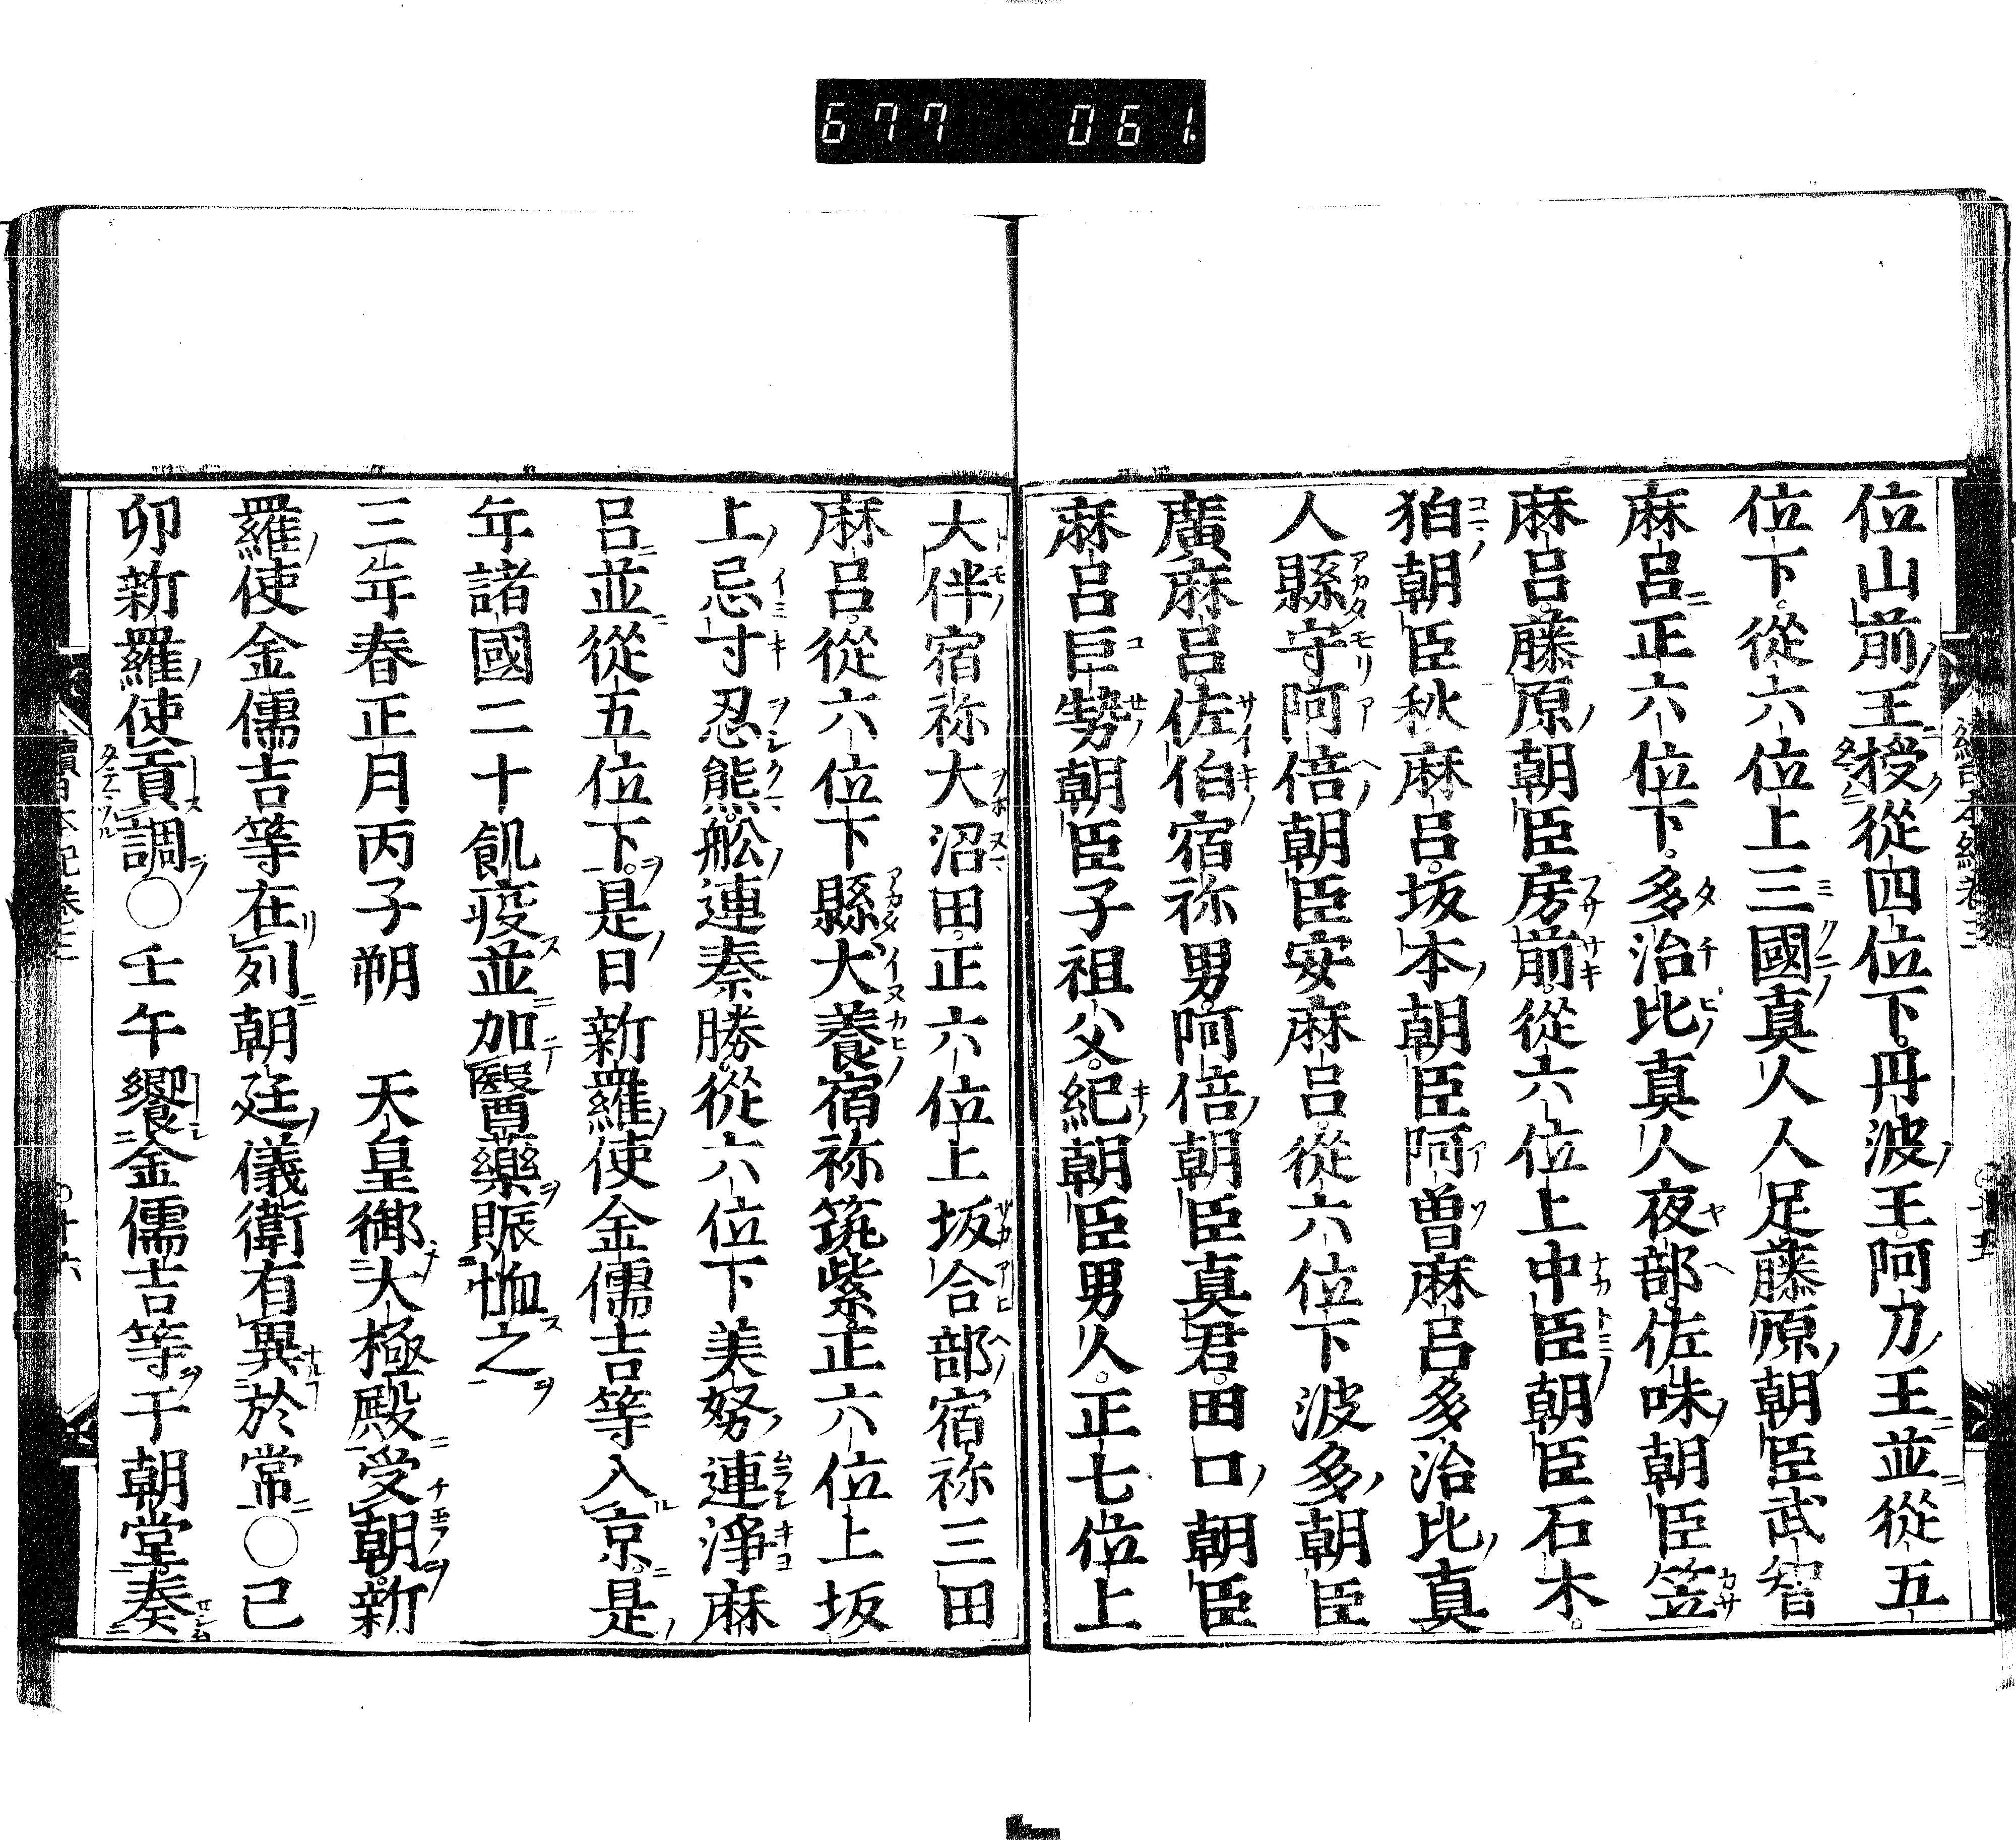 677 061
位山前王授從四位下丹波王阿刀王並從五
位下從六位上三國真人人足藤原朝臣武智
麻呂正六位下多治比真人夜部佐味朝臣笠
麻呂藤原朝臣房前從六位上中臣朝臣石木
狛朝臣秋麻呂坂本朝臣阿曽麻呂多治比真
人縣守阿倍朝臣安麻呂從六位下波多朝臣
廣麻呂佐伯宿祢男阿倍朝臣真君田口朝臣
麻呂巨勢朝臣子祖父紀朝臣男人正七位上
大伴宿祢大沼田正六位上坂合部宿祢三田
麻呂從六位下縣犬養宿祢筑紫正六位上坂
上忌寸忍熊舩連秦勝從六位下美努連淨麻
呂並從五位下是日新羅使金儒吉等入京是
年諸國二十飢疫並加醫藥賑恤之
三年春正月丙子朔 天皇御大極殿受朝新
羅使金儒吉等在列朝廷儀衛有異於常○己
卯新羅使貢調○壬午饗金儒吉等于朝堂奏